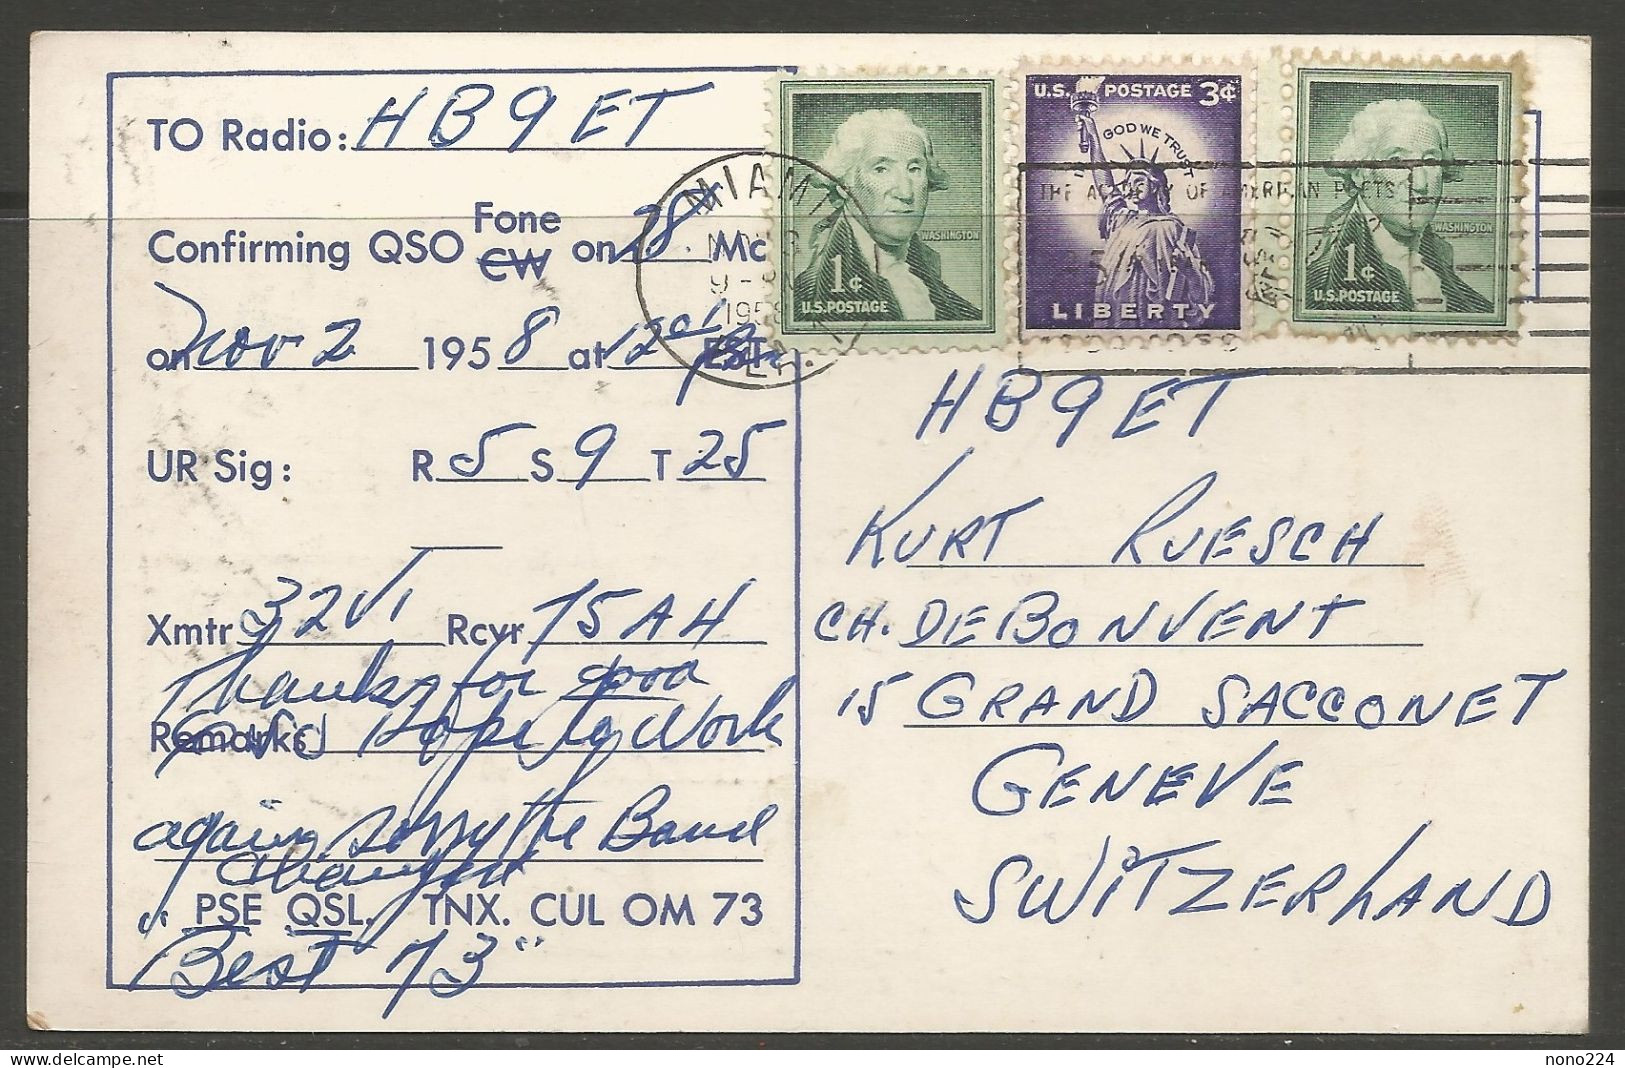 TO Radio: HB9ET
Confirming QSO Fone CW on 28. Mc
on Nov 2 1958 at 12 EST
UR Sig: R 5 S 9 T 25
Xmtr 32V1 Rcvr 75A4
Thanks for
Remarks Hope to Work
again. Sorry the Band
changed
" PSE QSL. TNX. CUL OM 73
Best 73"
MIAMI
9 -
1958
FLA.
1¢
WASHINGTON
U.S. POSTAGE
U.S. POSTAGE 3¢
IN GOD WE TRUST
LIBERTY
1¢
WASHINGTON
U.S. POSTAGE
THE ACADEMY OF AMERICAN POETS
HB9ET
KURT RUESCH
CH. DE BONVENT
15 GRAND SACCONET
GENEVE
SWITZERLAND
delcampe.net
nono224